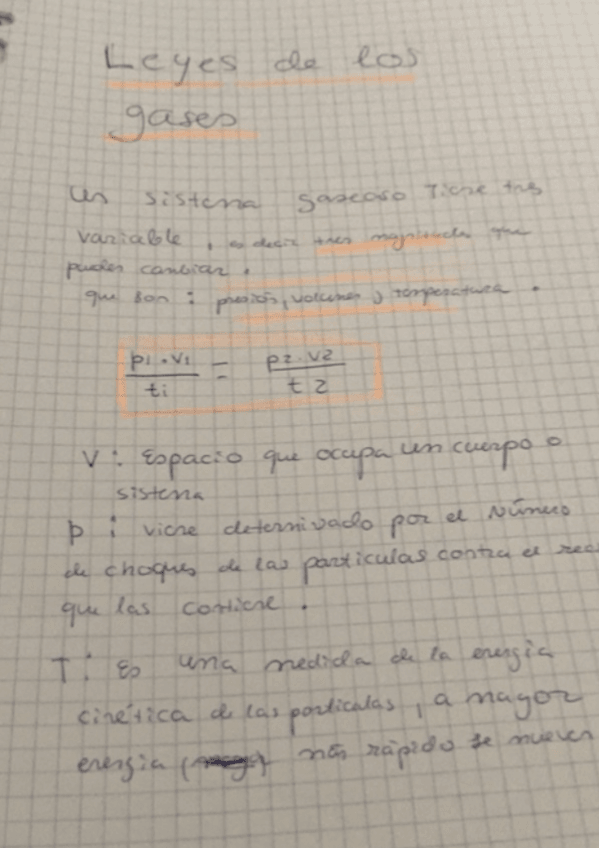 Leyes de los
gases
un sistema gaseoso tiene tres
variable, es decir tres magnitudes que
pueden cambiar.
que son: presión, volumen y temperatura.
p1.v1 = p2.v2
t1 t2
V: Espacio que ocupa un cuerpo o
sistema
p: viene determinado por el número
de choques de las particulas contra el
que las contiene.
T: Es una medida de la energia
cinética de las particulas, a mayor
energia más rápido se mueven